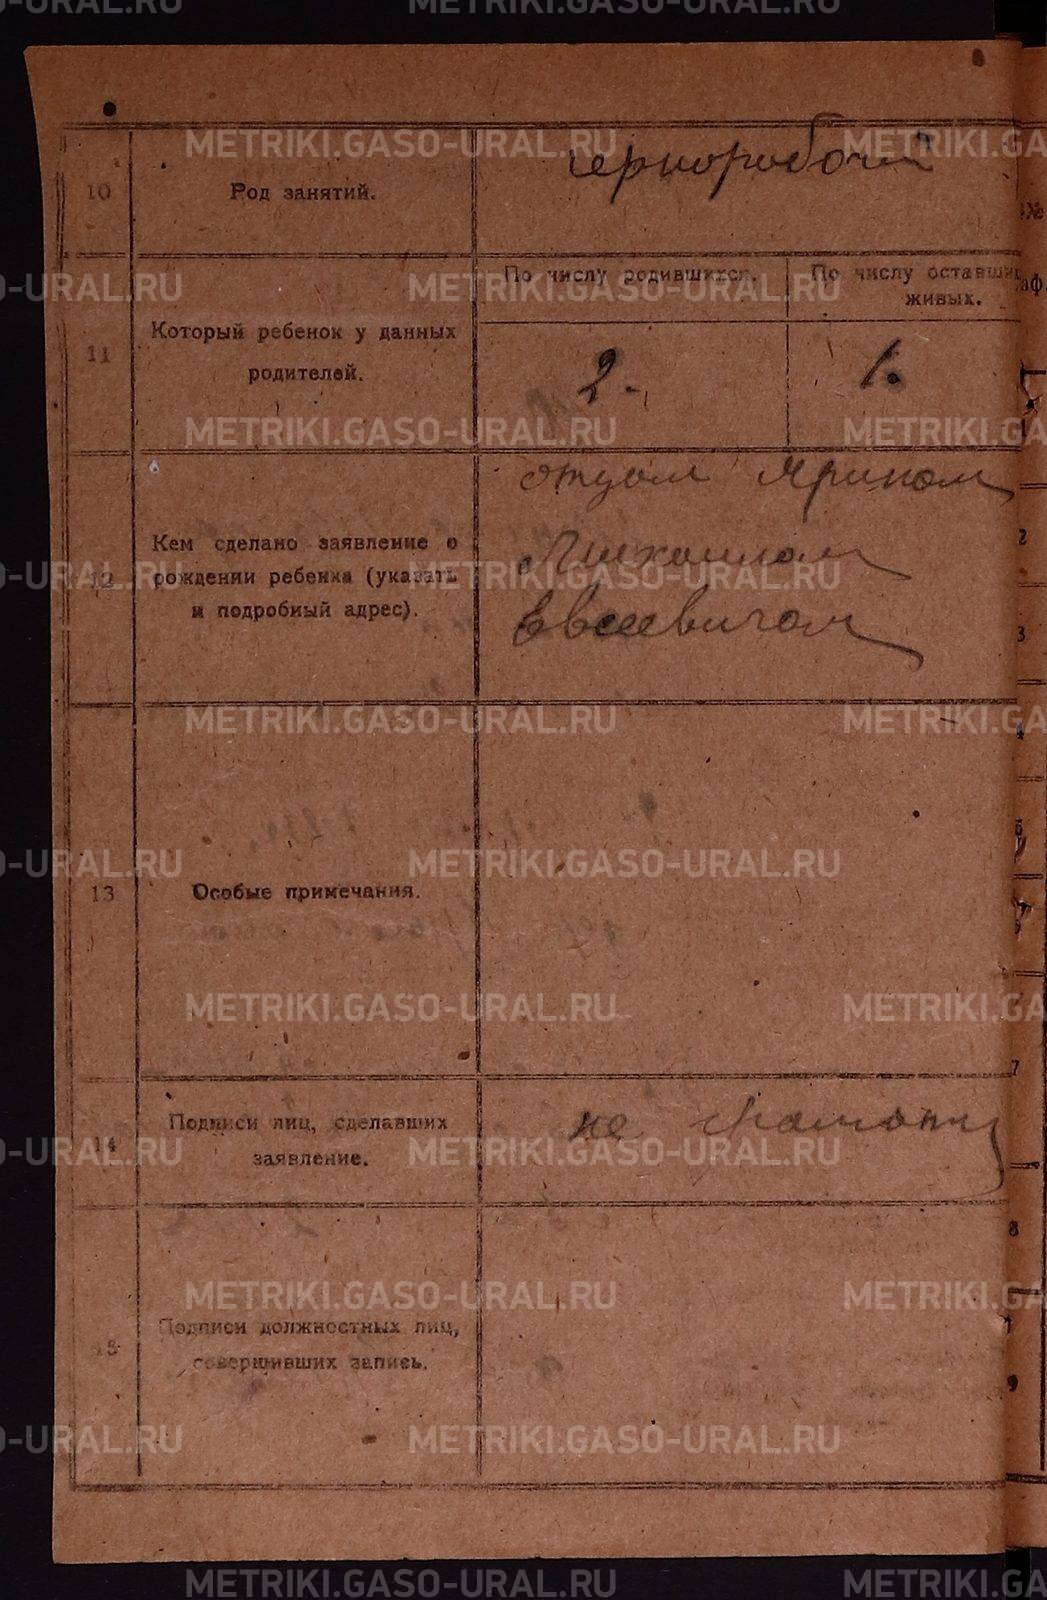 10
Род занятий.
чернорабочий
11
Который ребенок у данных
родителей.
По числу родившихся.
2.
По числу оставших
живых.
1.
12
Кем сделано заявление о
рождении ребенка (указать
и подробный адрес).
отцом Яриным
Михаилом
Евсеевичом
13
Особые примечания.
14
Подписи лиц, сделавших
заявление.
не грамотн
15
Подписи должностных лиц,
совершивших запись.
№
аф.
2
3
4
7
8
9
METRIKI.GASO-URAL.RU